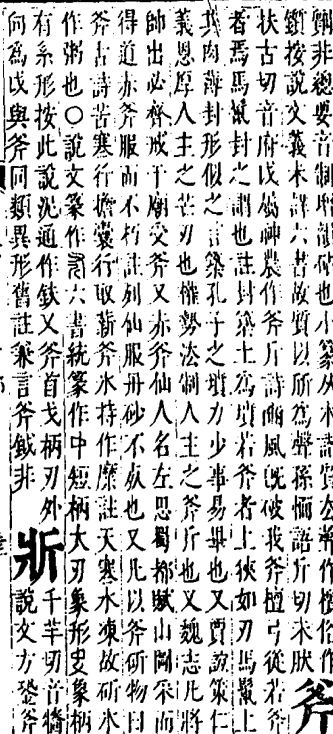 非總要音制增韻破也小篆从木詩質公作櫍俗作
鑕按說文義未詳六書故質以所爲聲孫愐語斤切未肰
斧
扶古切音府戉屬神農作斧斤詩豳風旣破我斧檀弓從若斧
者焉馬鬛封之謂也註封築土爲墳若斧者上狹如刃馬鬛上
其肉薄封形似之言築孔子之墳力少事易畢也又賈誼策仁
義恩厚人主之芒刃也權勢法制人主之斧斤也又魏志凡將
帥出必齊戒于廟受斧又赤斧仙人名左思蜀都賦山圖采而
得道赤斧服而不朽註列仙服丹砂不也又凡以斧斫物曰
斧古詩苦寒行擔囊行取薪斧氷持作糜註天寒水凍故斫氷
作粥也○說文篆作六書統篆作中短柄大刃象形史象柄
有系形按此說泥通作鈇又斧首戈柄刃外
向爲戉與斧同類異形舊註兼言斧鉞非
斨
千羊切音牆
說文方銎斧